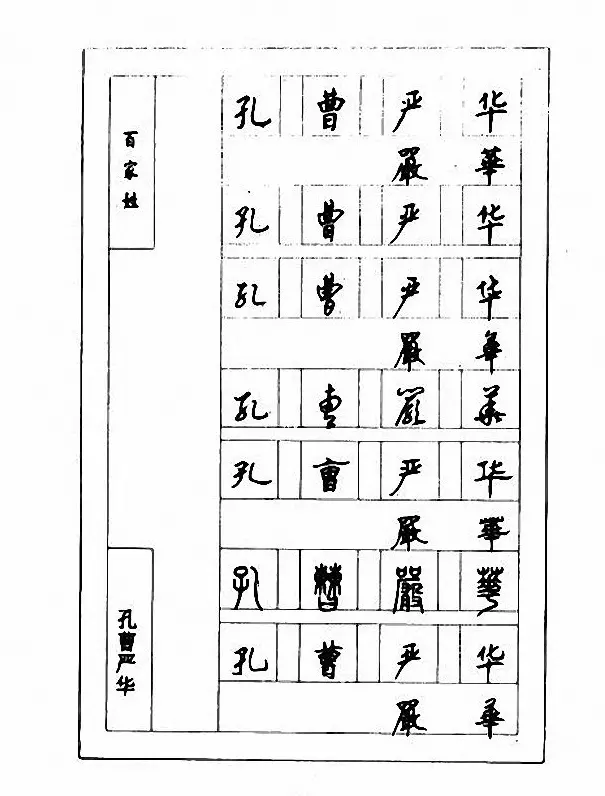 百家姓
孔 曹 严 华
嚴 華
孔 曹 严 华
孔 曹 严 华
嚴 華
孔 曹 嚴 華
孔 曹 严 华
嚴 華
孔 曹 嚴 華
孔 曹 严 华
嚴 華
孔曹严华